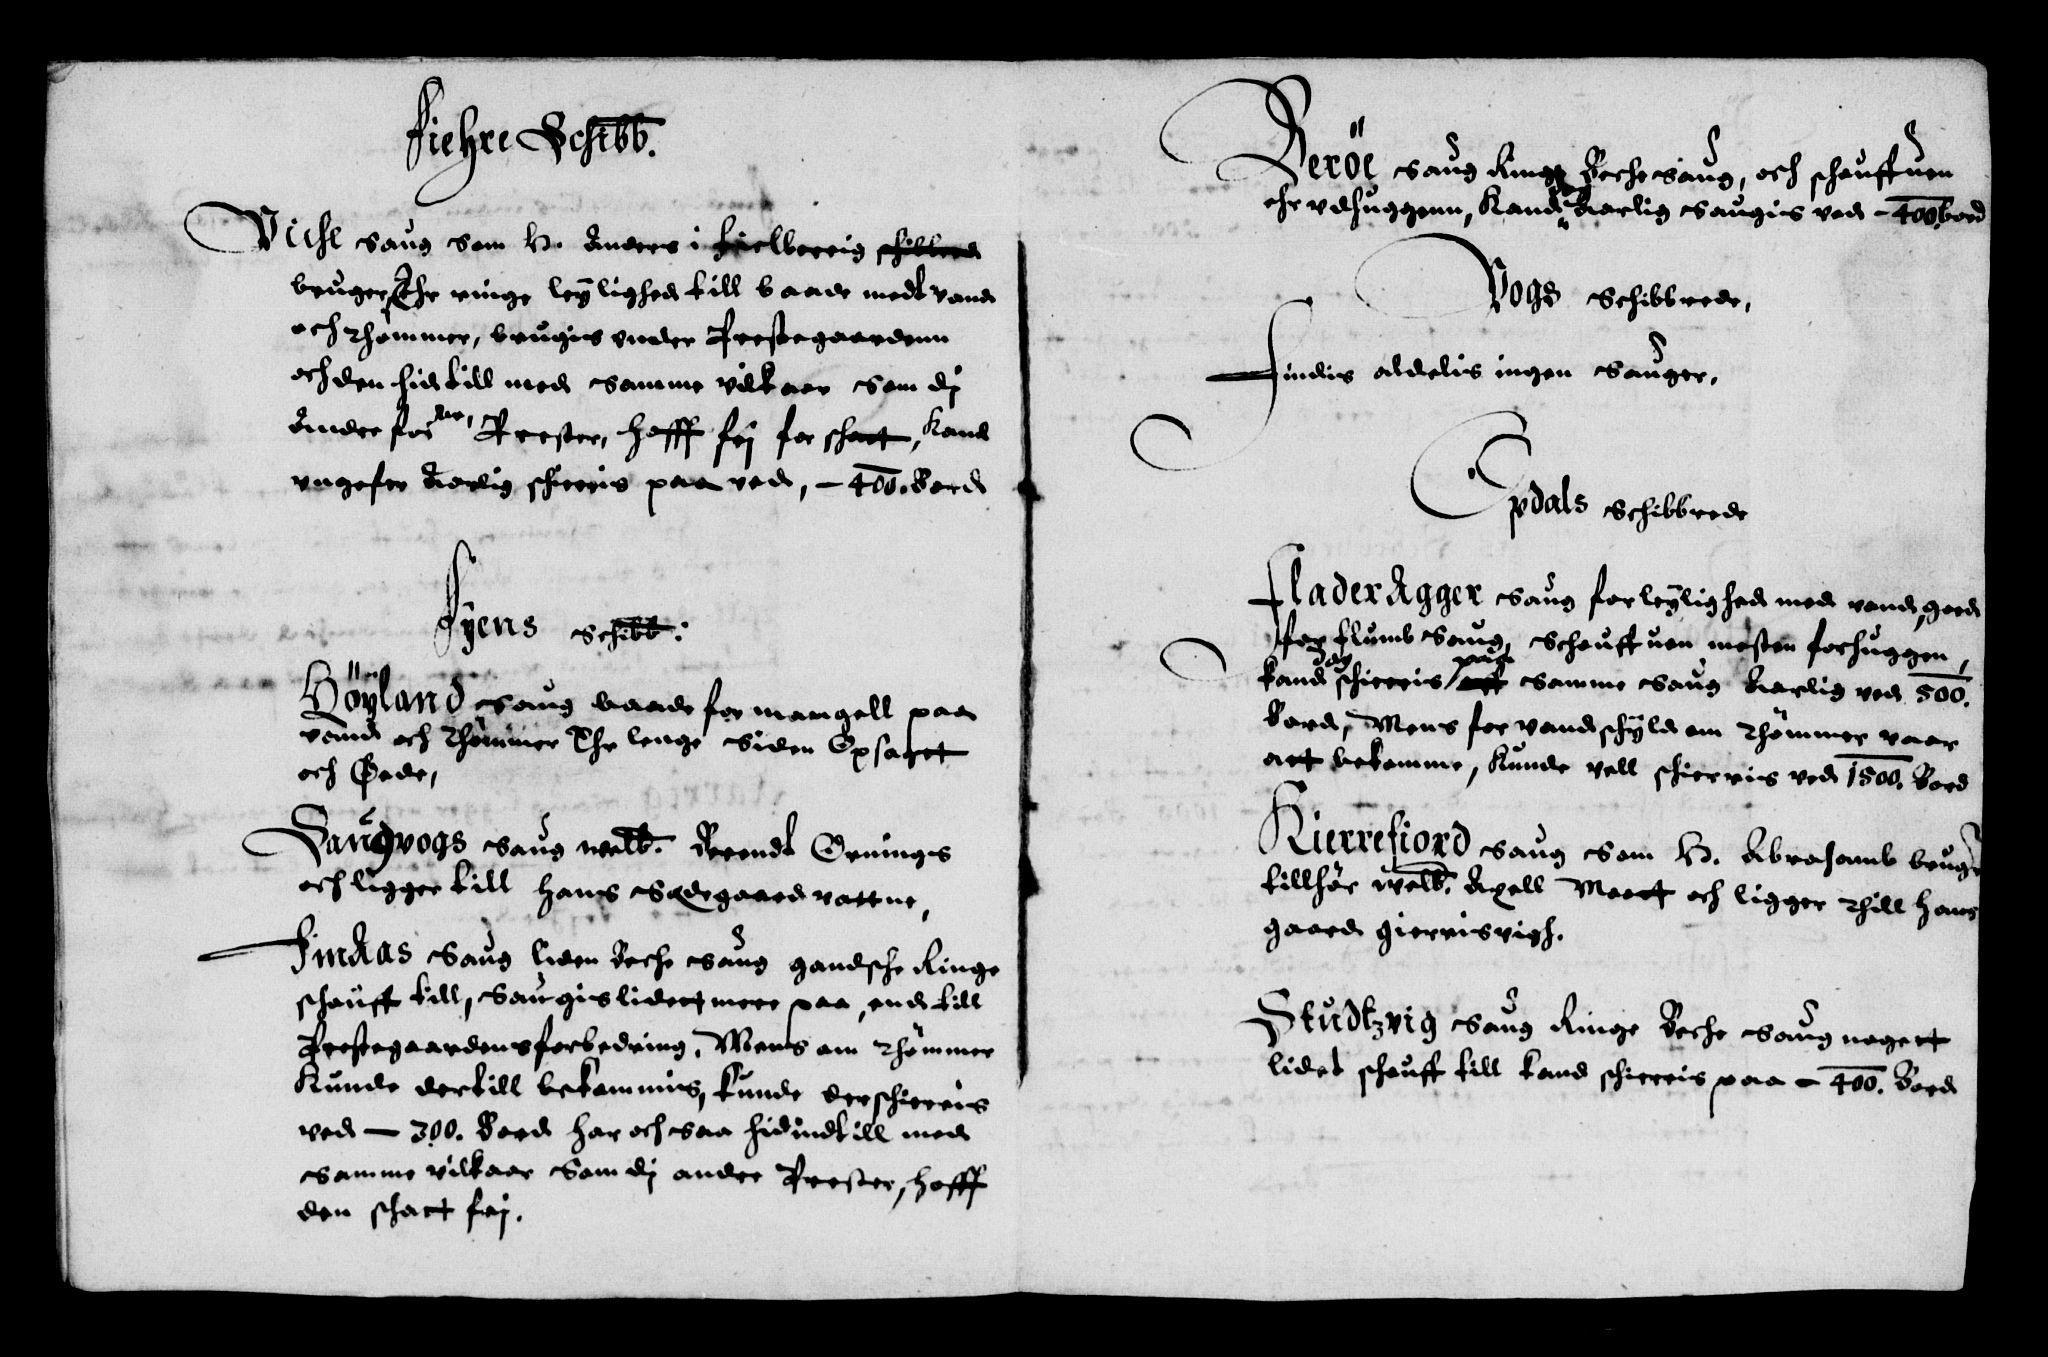 Fiehre Schibb.
Viche Saug som H. Anders i Fielbereig schibbrede
bruger, Ehr ringe leylighed till baade medt vand
och Thømmer, brugis vnder Prestegaardenn
och den hid till med samme vilkaar som dj
Andre for Prester, hafft frj for schatt, Kand
vngefer Aarlig schierris paa ved, – 400. Bord
Fÿens Schibb:
Höyland Saug baade for mangell paa
vand och Thømmer Ehr lenge siden Opsatt
och Øede,
Saugvogs Saug welb. Berendt Ornings
och ligger till hans Sædegaard vattne,
Fimaas Saug liden Beche saug gandsche Ringe
schauff till, Saugis lidett mere paa, end till
Prestegaardens forbedring, Mens om Thømmer
Kunde dertill bekommis, kunde der schierris
ved – 300. Bord har och saa hidindtill med
samme vilkaar som dj andre Prester, hafft
den schatt frj.
Beröe Saug Ringe Beche saug, och schauffuen
ehr vdhuggenn, Kand Aarlig saugis ved – 400 bord
Vogs Schibbrede,
Findis aldelis ingen Sauger,
Opdals Schibbrede
FladerAgger Saug for leylighed med vand, goed
for flumb Saug, Schauffuen mesten forhuggen,
kand dog schierris paa samme saug Aarlig ved 500.
Bord, Mens for vandschyld om Thømmer vaar
att bekomme, Kunde vell schierris ved 1500. Bord
Kierrefiord Saug som H. Abrahamb bruger
tillhør welb. Axell Matt och ligger Thill hans
gaard gierrisvigh.
Studtzvig Saug Ringe Beche saug nogett
lidet schauff till kand schierris paa – 400. Bord